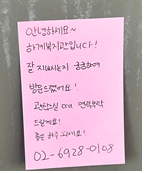 안녕하세요~
하계복지관입니다!
잘 지내시는지 궁금하여
방문드렸어요!
괜찮으실 때 연락부탁
드릴게요!
좋은 하루 되세요!
02-6928-0108